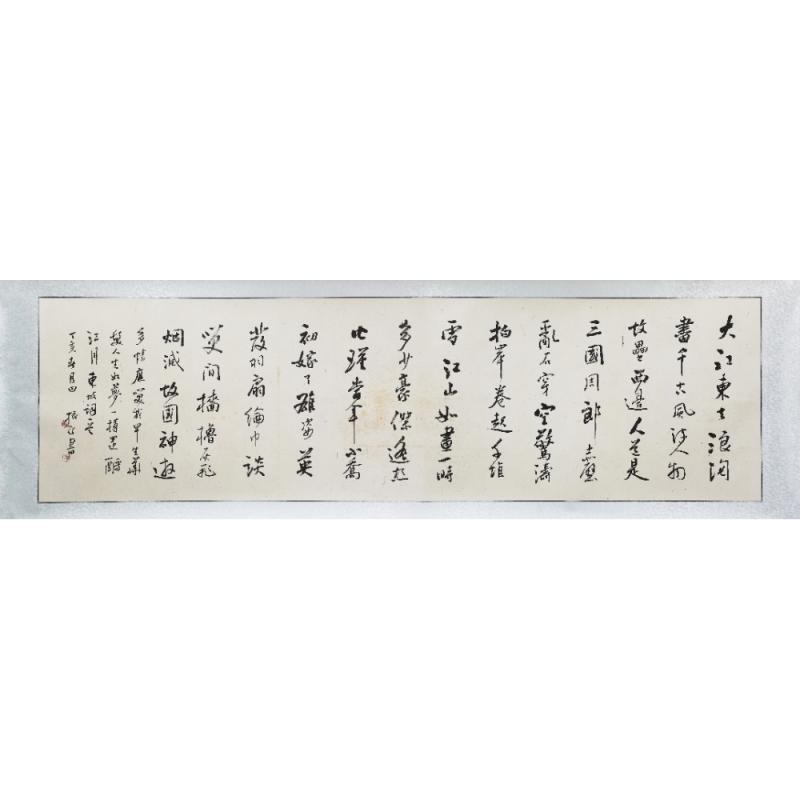 大江東去浪淘
盡千古風流人物
故壘西邊人道是
三國周郎赤壁
亂石穿空驚濤
拍岸卷起千堆
雪江山如畫一時
多少豪傑遙想
公瑾當年小喬
初嫁了雄姿英
發羽扇綸巾談
笑間檣櫓灰飛
烟滅故國神遊
多情應笑我早生華
髮人生如夢一樽還酹
江月東坡詞一首
丁亥春月田